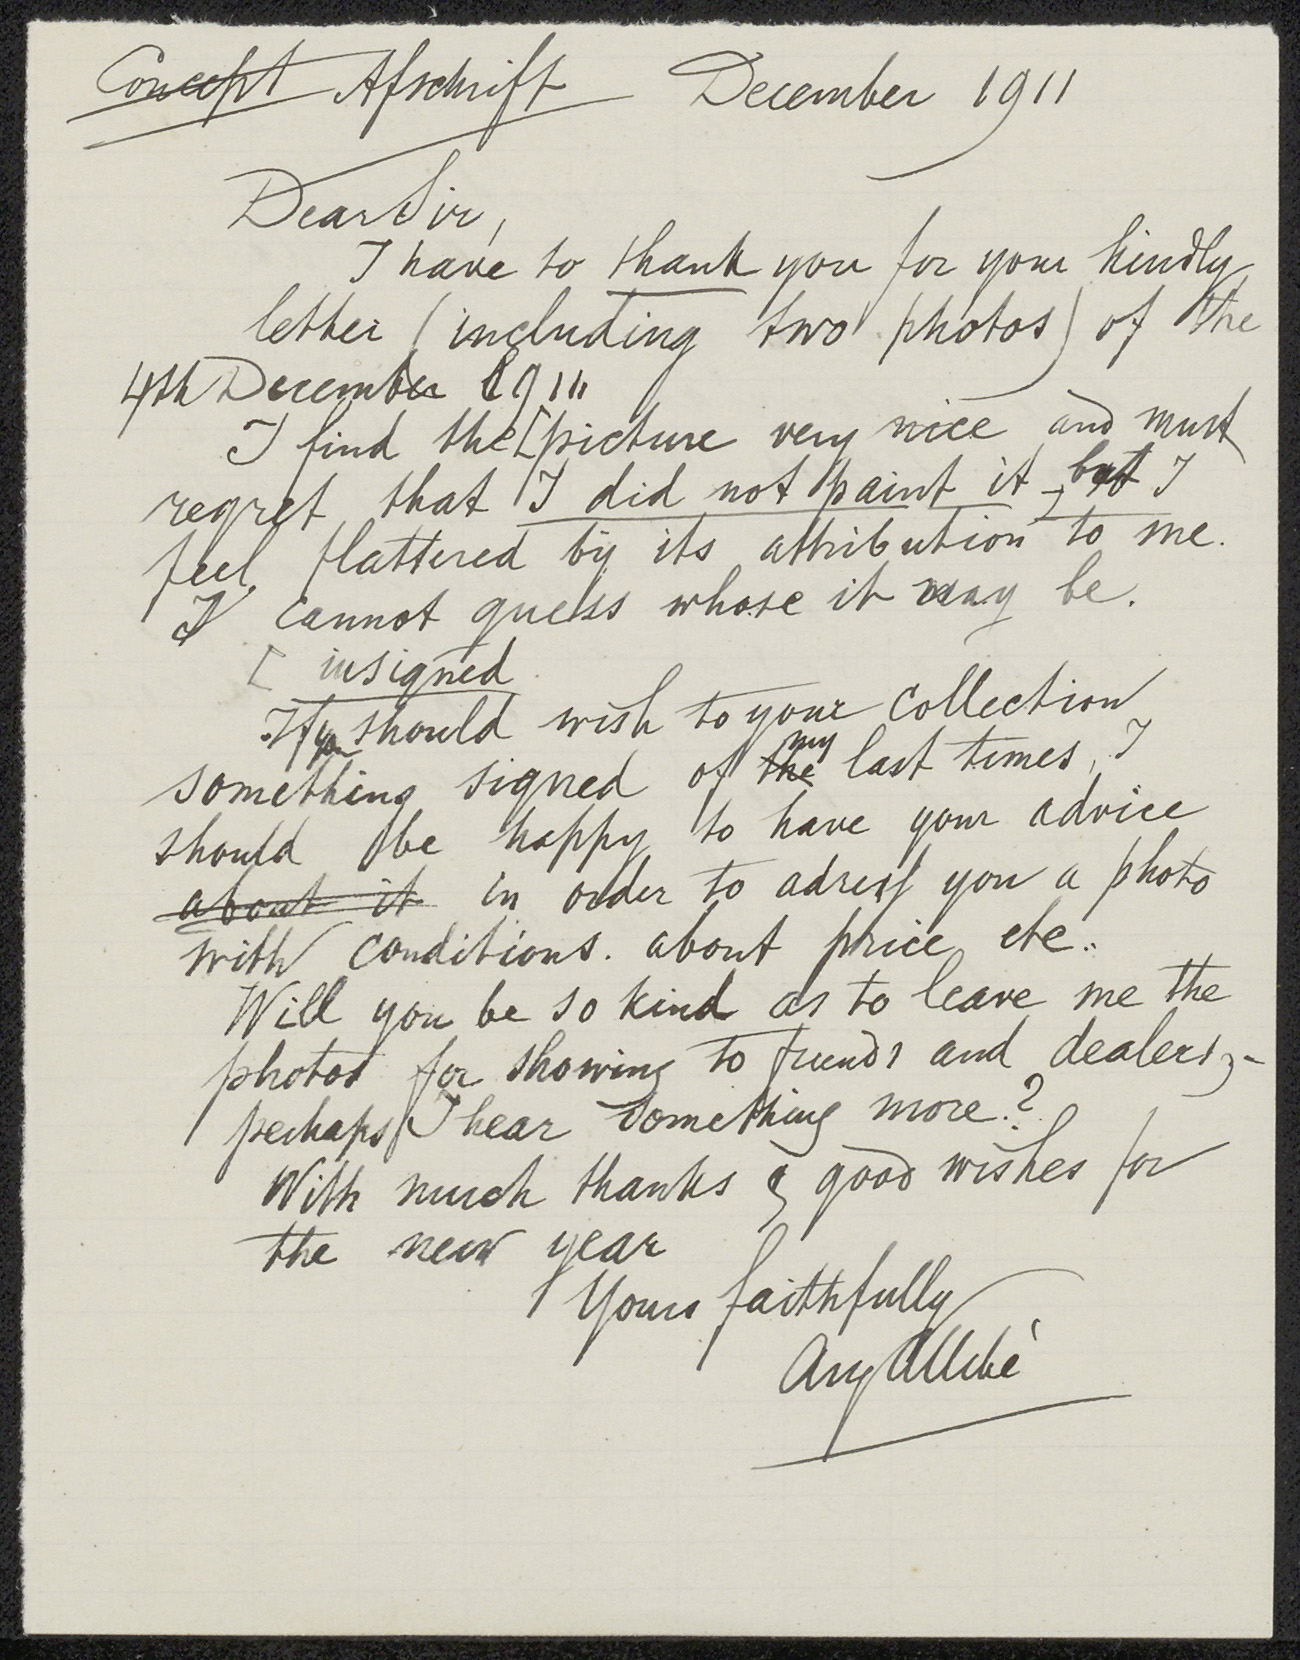 Concept Afschrift December 1911
Dear Sir,
I have to thank you for your kindly
letter (including two photos) of the
4th December 1911
I find the [picture very nice and must
regret that I did not paint it, but I
feel flattered by its attribution to me.
I cannot guess whose it may be.
[ insigned
If you should wish to your collection
something signed of the my last times, I
should be happy to have your advice
about it in order to adress you a photo
with conditions. about price etc..
Will you be so kind as to leave me the
photos for showing to friends and dealers,-
perhaps I hear something more.?
With much thanks & good wishes for
the new year
Yours faithfully
Ary Allebé